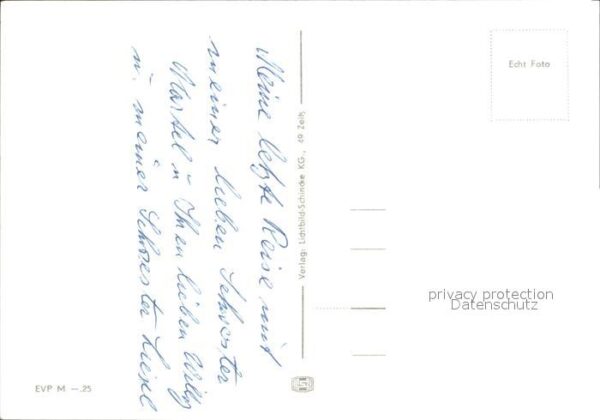 Meine letzte Reise mit
meiner lieben Schwester
Martel u Ihren lieben Willy
u. meiner Schwester Liesel
Verlag: Lichtbild-Schincke KG., 49 Zeitz
Echt Foto
privacy protection
Datenschutz
EVP M —.25